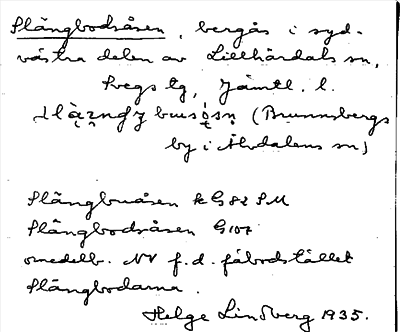 Slängbodsåsen, bergås i syd-
västra delen av Lillhärdals sn,
Svegs tg, Jämtl. l.
(Brunnsbergs
by i Älvdalens sn)
Slängbuåsen k G82 SM
Slängbodsåsen G107
omedelb. NV f.d. fäbodstället
Slängbodarna.
Helge Lindberg 1935.